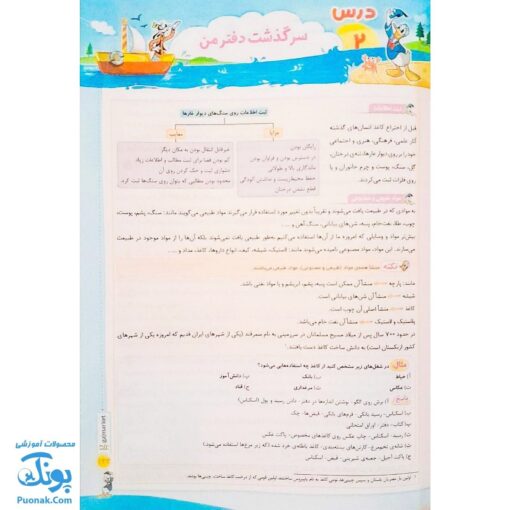 درس
۲
سرگذشت دفتر من
قبل از اختراع کاغذ انسان‌های گذشته
آثار علمی، فرهنگی، هنری و اجتماعی
خود را بر روی دیوار غارها، تنه‌ی درختان،
گل، سنگ، پوست و چرم جانوران و یا
روی فلزات ثبت می‌کردند.
ثبت اطلاعات روی سنگ‌های دیوار غارها
مزایا
معایب
رایگان بودن
در دسترس بودن و فراوان بودن
ماندگاری بالا و طولانی
حفظ محیط‌زیست و نداشتن آلودگی
قطع نشدن درختان
غیرقابل انتقال بودن به مکان دیگر
کم بودن فضا برای ثبت مطالب و اطلاعات زیاد
دشواری ثبت و حک کردن روی آن
محدود بودن مطالبی که بتوان روی سنگ‌ها ثبت کرد.
به موادی که در طبیعت یافت می‌شوند و تقریباً بدون تغییر مورد استفاده قرار می‌گیرند مواد طبیعی می‌گویند. مانند: سنگ، پشم، پوست،
چوب، طلا، نفت‌خام، پنبه، شن‌های بیابانی، سنگ آهن و ...
بیش‌تر مواد و وسایلی که امروزه ما از آن‌ها استفاده می‌کنیم به‌طور طبیعی یافت نمی‌شوند بلکه آن‌ها را از مواد موجود در طبیعت
می‌سازند. این مواد، مواد مصنوعی نامیده می‌شوند مانند: لاستیک، شیشه، کیف، انواع داروها، کاغذ، مداد و ...
نکته منشأ همه‌ی مواد (طبیعی و مصنوعی)، مواد طبیعی می‌باشند.
مانند: پارچه منشأ آن ممکن است پنبه، پشم، ابریشم و یا مواد نفتی باشد.
شیشه منشأ آن شن‌های بیابانی است.
کاغذ منشأ اصلی آن چوب است.
پلاستیک و لاستیک منشأ آن نفت خام می‌باشد.
در حدود ۷۰۰ سال پس از میلاد مسیح مسلمانان در سرزمینی به نام سمرقند (یکی از شهرهای ایران قدیم که امروزه یکی از شهرهای
کشور ازبکستان است) به دانش ساخت کاغذ دست یافتند.
مثال در شغل‌های زیر مشخص کنید از کاغذ چه استفاده‌هایی می‌شود؟
آ) خیاط ب) بانک پ) دانش‌آموز
ت) عکاس ث) مرغداری ج) قناد
پاسخ آ) برش روی الگو - نوشتن اندازه‌ها در دفتر - دادن رسید و پول (اسکناس)
ب) اسکناس - رسید بانکی - فرم‌های بانکی - قبض‌ها - چک
پ) کتاب - دفتر - اوراق امتحانی
ت) رسید - اسکناس - چاپ عکس روی کاغذهای مخصوص - پاکت عکس
ج) پاکت آجیل، جعبه‌ی شیرینی، قبض، اسکناس
محصولات آموزشی
پونک
Puonak.com